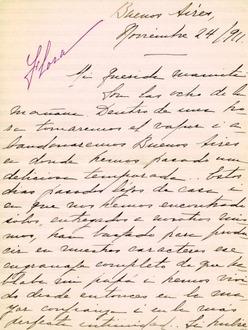 Buenos Aires,
Noviembre 24/911
Flora
Mi querida mamita
Son las ocho de la
mañana. Dentro de una ho
ra tomaremos el vapor i a
bandonaremos Buenos Aires
en donde hemos pasado una
deliciosa temporada. Estos
días pasados lejos de casa e
en que nos hemos encontrado
solos, entregados a nosotros mis
mos han bastado para produ
cir en nuestros caracteres ese
engranaje completo de que ha
blaba mi papá i hemos vivi
do desde entonces en la ma
yor confianza i en la mas
perfecta